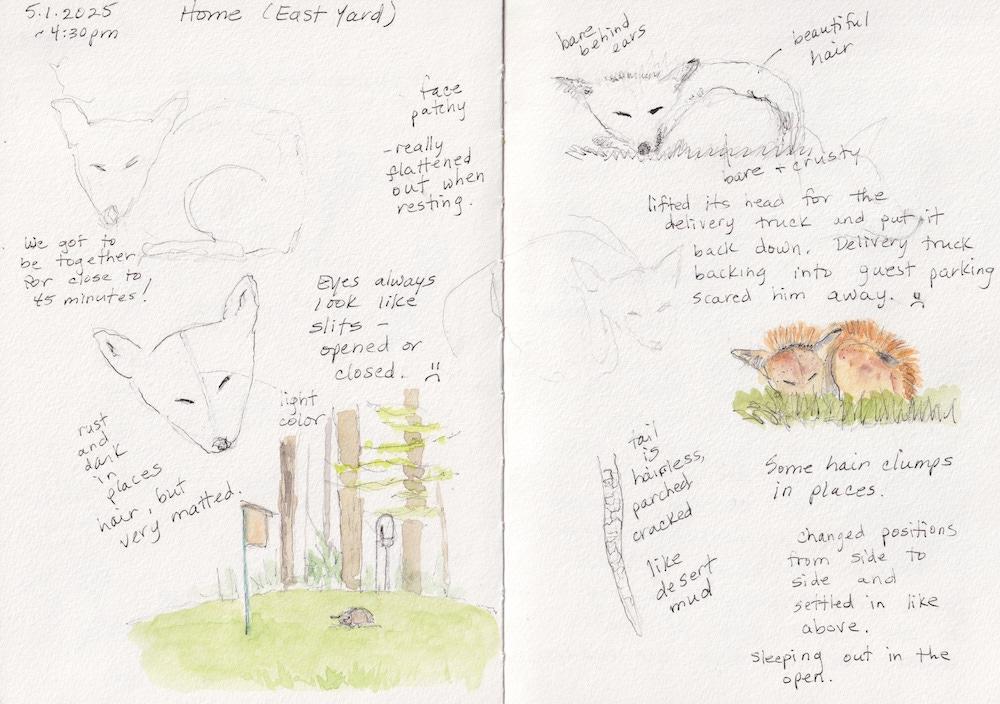 5.1.2025
~4:30pm
Home (East Yard)
face
patchy
-really
flattened
out when
resting.
We got to
be together
for close to
45 minutes!
Eyes always
look like
slits –
opened or
closed. :(
light
color
rust
and
dark
in
places
hair, but
very matted.
bare
behind
ears
beautiful
hair
bare + crusty
lifted its head for the
delivery truck and put it
back down. Delivery truck
backing into guest parking
scared him away. :(
tail
is
hairless,
parched
cracked
like
desert
mud
Some hair clumps
in places.
changed positions
from side to
side and
settled in like
above.
sleeping out in the
open.